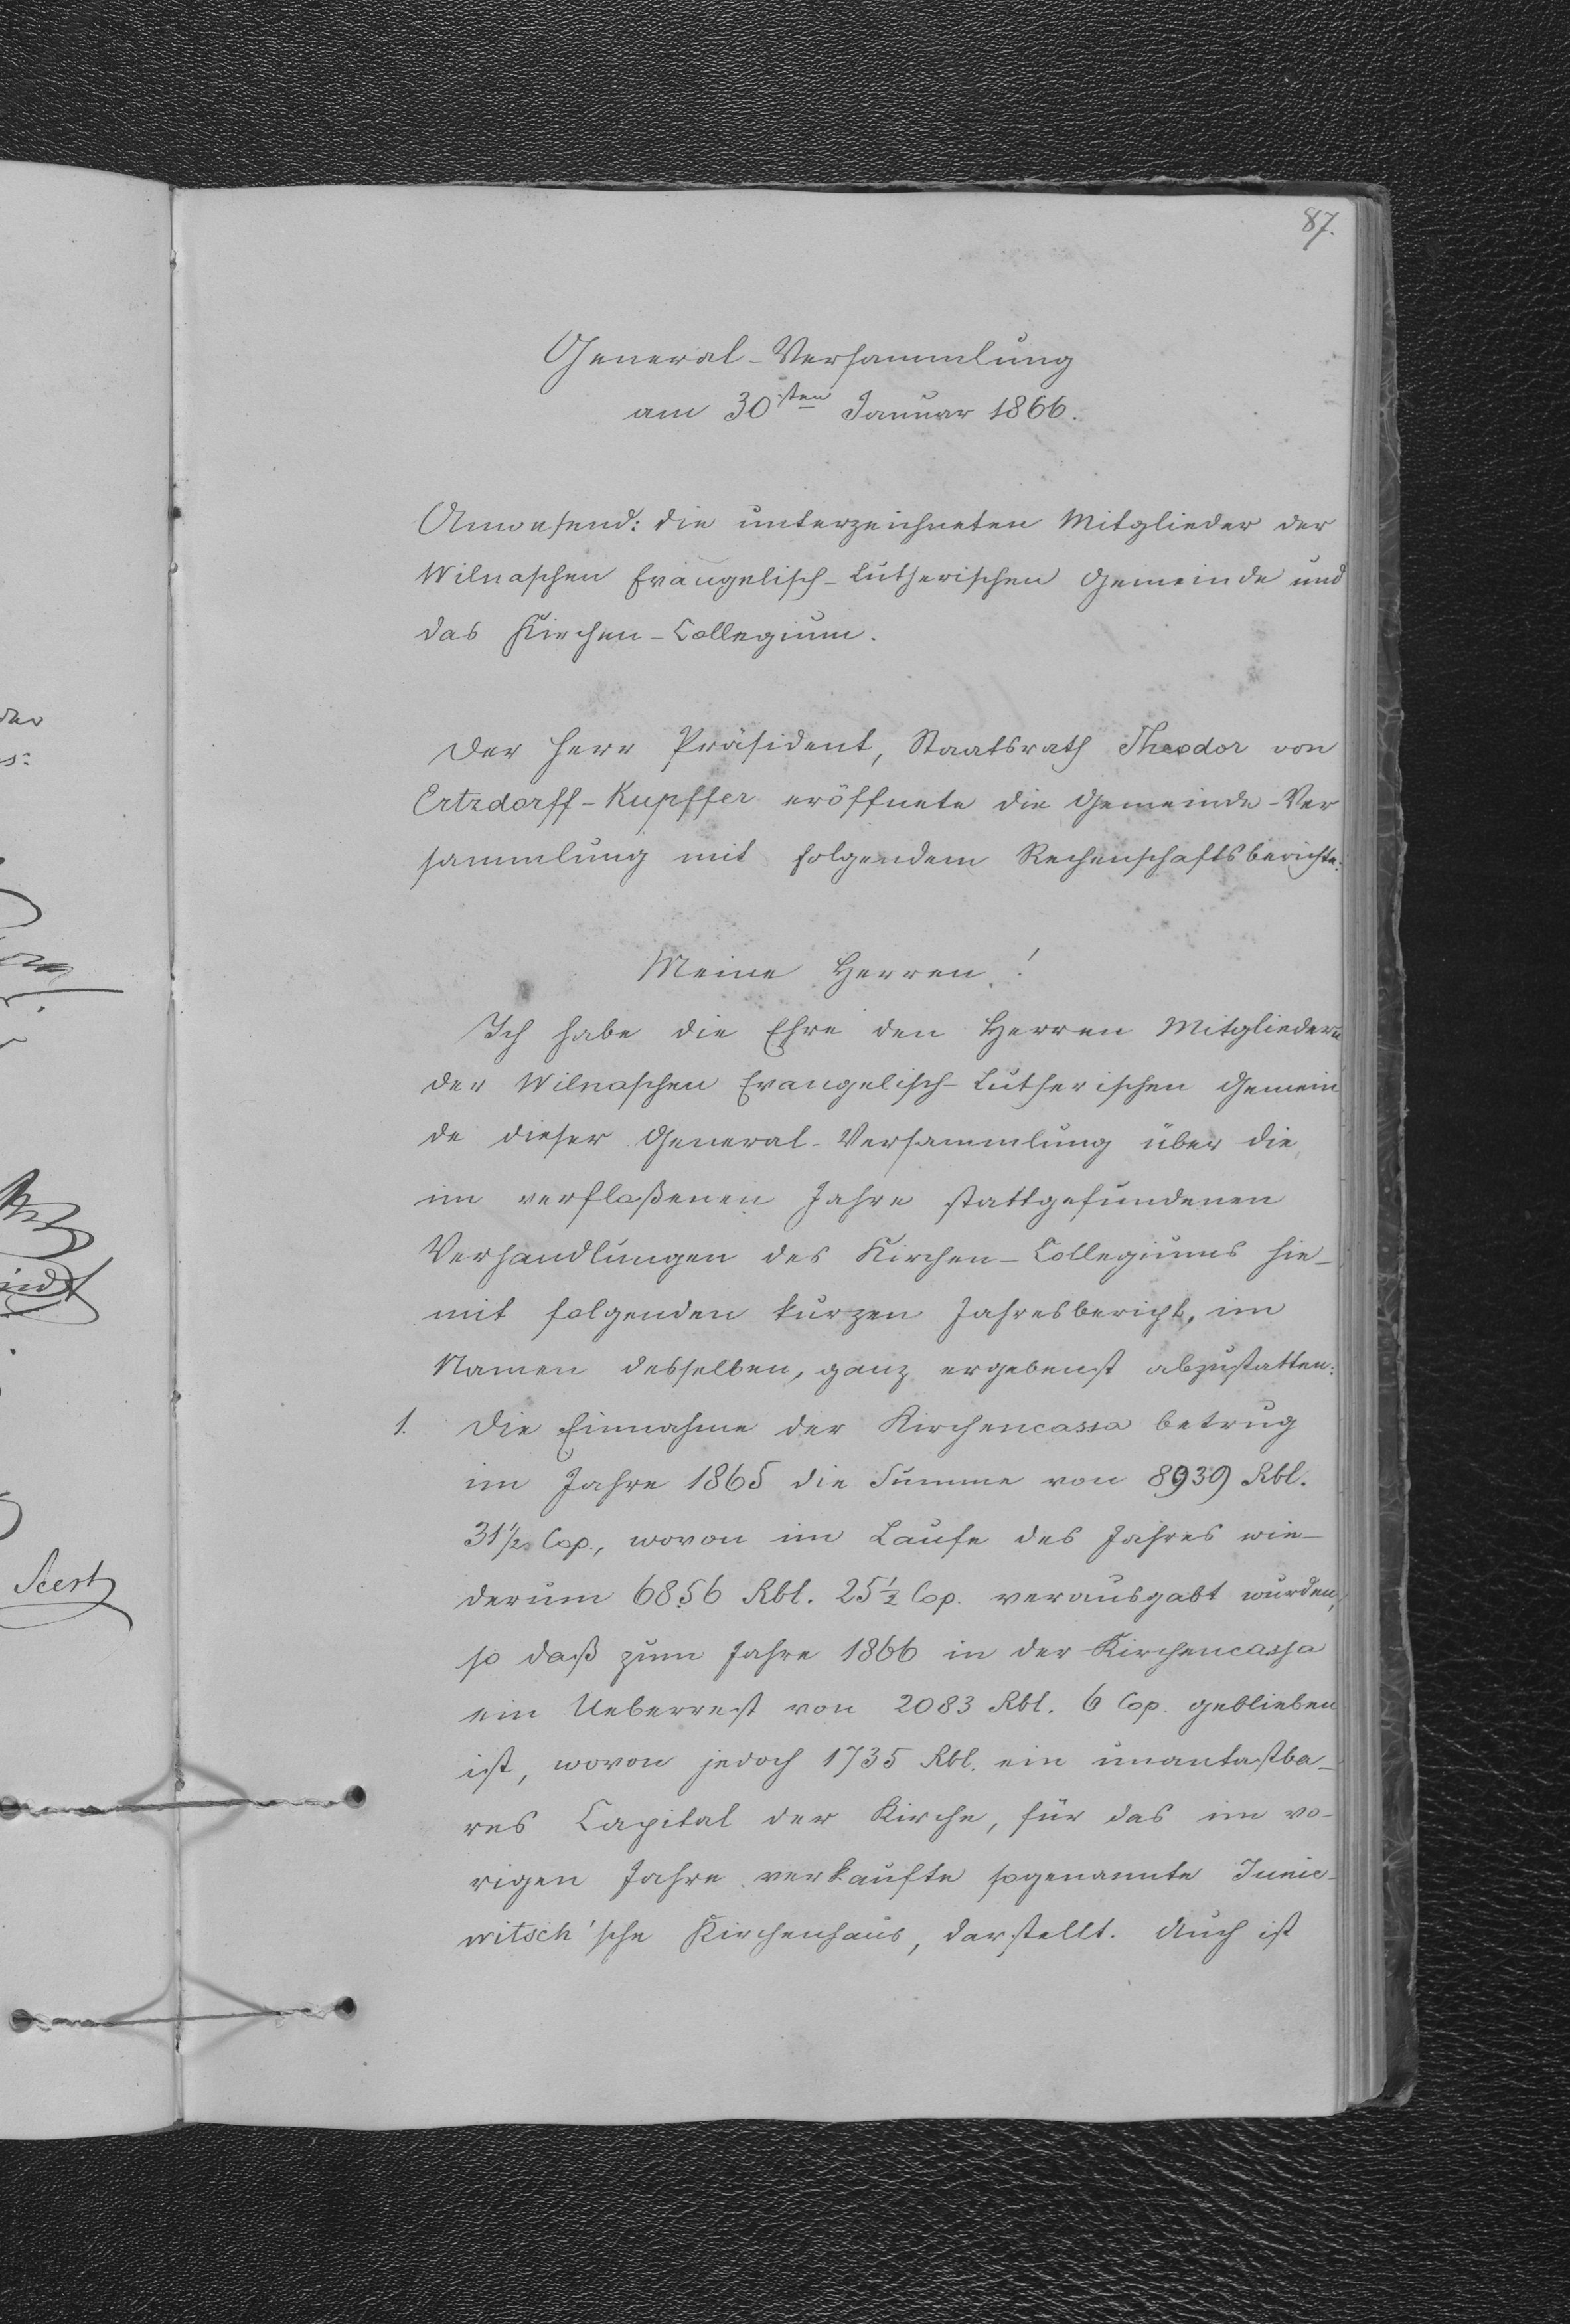 87.
General-Versammlung
am 30sten Januar 1866.
Anwesend: die unterzeichneten Mitglieder der
Wilnaschen Evangelisch-Lutherischen Gemeinde und
das Kirchen-Collegium.
Der Herr Präsident, Staatsrath Theodor von
Ertzdorff-Kupffer eröffnete die Gemeinde-Ver
sammlung mit folgendem Rechenschaftsberichte:
Meine Herren!
Ich habe die Ehre den Herren Mitgliedern
der Wilnaschen Evangelisch-Lutherischen Gemein
de dieser General-Versammlung über die
im verfloßenen Jahre stattgefundenen
Verhandlungen des Kirchen-Collegiums hie-
mit folgenden kurzen Jahresbericht, im
Namen desselben, ganz ergebenst abzustatten:
1. Die Einnahme der Kirchencassa betrug
im Jahre 1865 die Summe von 8939 Rbl.
31 1/2 Cop., wovon im Laufe des Jahres wie-
derum 6856 Rbl. 25 1/2 Cop. verausgabt wurden,
so daß zum Jahre 1866 in der Kirchencassa
ein Ueberrest von 2083 Rbl. 6 Cop. geblieben
ist, wovon jedoch 1735 Rbl. ein unantastba-
res Capital der Kirche, für das im vo-
rigen Jahre verkaufte sogenannte Junie-
witsch'sche Kirchenhaus, darstellt. Auch ist
Seert